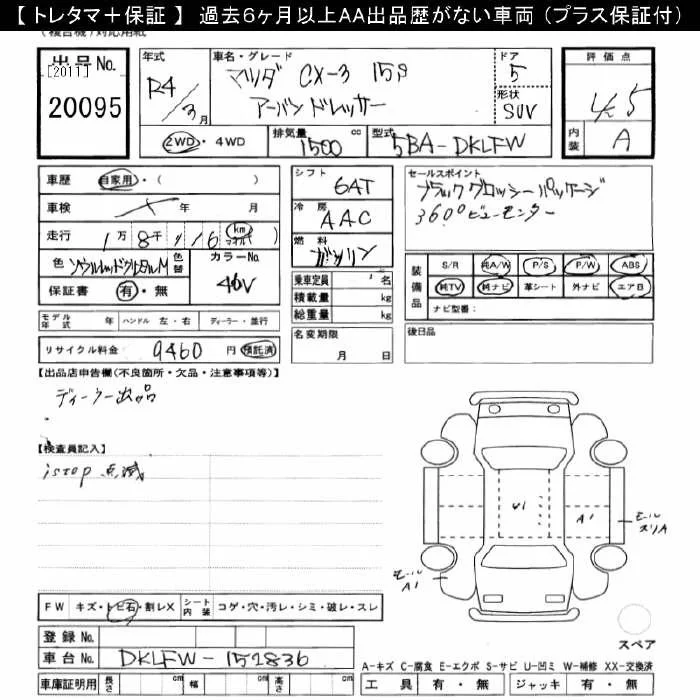 【 トレタマ＋保証 】 過去6ヶ月以上AA出品歴がない車両（プラス保証付）
（複合機）対応用紙
出品No.
[2011]
20095
年式
R4/3月
車名・グレード
マツダ CX-3 15S
アーバンドレッサー
ドア
5
形状
SUV
評価点
4.5
内装
A
2WD・4WD
排気量
1500 cc
型式
5BA-DKLFW
車歴 自家用・（ ）
車検 年 月
走行 1万8千 116 km マイル
色 ソウルレッドクリスタルM
色替
カラーNo.
46V
保証書 有・無
シフト
6AT
冷房
AAC
燃料
ガソリン
乗車定員 名
積載量 kg
総重量 kg
セールスポイント
ブラックグロッシーパッケージ
360°ビューモニター
装備品
S/R 純A/W P/S P/W ABS
純TV 純ナビ 革シート 外ナビ エアB
ナビ型番：
モデル年式 年 ハンドル 左・右 ディーラー・並行
名変期限
月 日
後日品
リサイクル料金 9460 円 預託済
【出品店申告欄(不良箇所・欠品・注意事項等)】
ディーラー出品
【検査員記入】
istop 点滅
U1
A1
モール
スリA
モール
A1
FW キズ・トビ石・割レX
シート内装 コゲ・穴・汚レ・シミ・破レ・スレ
スペア
登録No.
車台No. DKLFW-152836
A-キズ C-腐食 E-エクボ S-サビ U-凹ミ W-補修 XX-交換済
車庫証明用 長さ cm 幅 cm 高さ cm
工具 有・無 ジャッキ 有・無